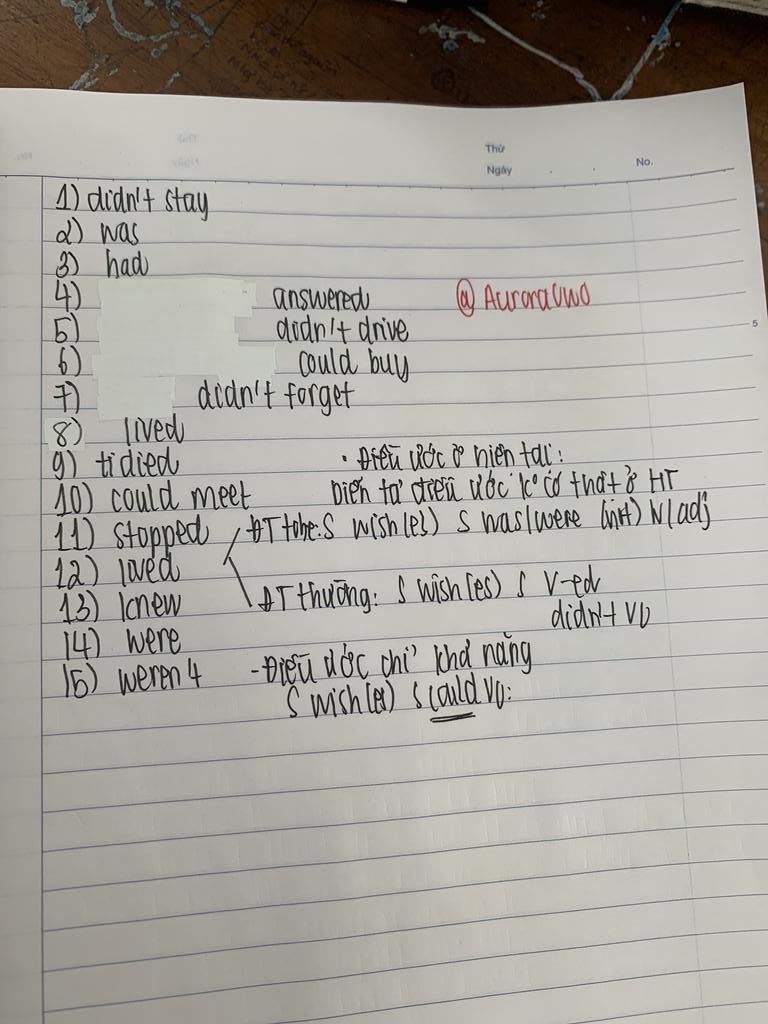 Thứ
Ngày . . No.
1) didn't stay
2) was
3) had
4) answered @AuroraUwU
5) didn't drive
5
6) could buy
7) didn't forget
8) lived
9) tidied • Điều ước ở hiện tại:
10) could meet Diễn tả điều ước k° có thật ở HT
11) stopped ĐT tobe: S wish(es) S was/were (not) N/adj
12) loved
13) knew ĐT thường: S wish(es) S V-ed
didn't V0
14) were
15) weren't - Điều ước chỉ khả năng
S wish(es) S could V0: